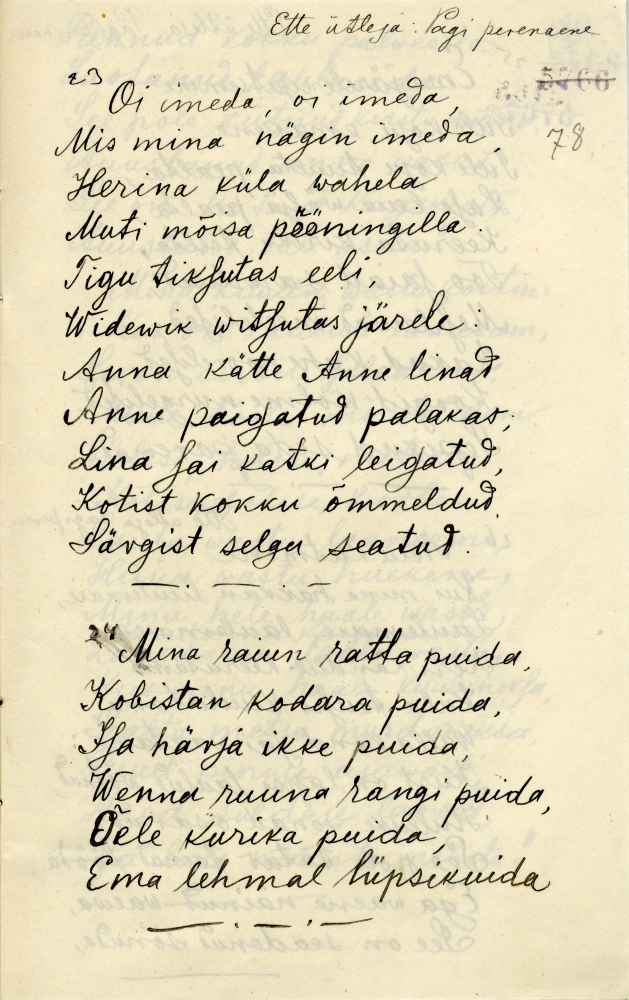 Ette ütleja: Pagi perenaene
5766
23
Oi imeda, oi imeda,
78
Mis mina nägin imeda,
Herina küla wahela
Muti mõisa pööningilla.
Tigu tiksutas eeli,
Widewik witsutas järele:
Anna kätte Anne linad
Anne paigatud palakas;
Lina sai katki leigatud,
Kotist kokku õmmeldud,
Särgist selga seatud.
24
Mina raiun ratta puida,
Kobistan kodara puida,
Isa härja ikke puida,
Wenna ruuna rangi puida,
Õele kurika puida,
Ema lehmal lüpsikuida